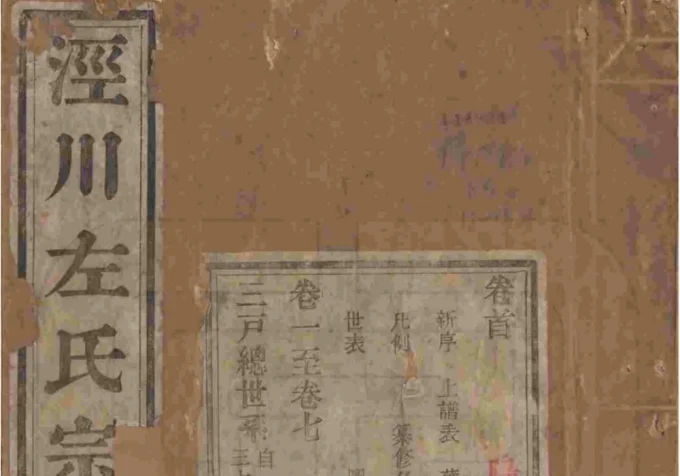 涇川左氏宗
卷首
新序 上譜表
凡例 纂修
世表
卷一至卷七
三戶總世系 自
三